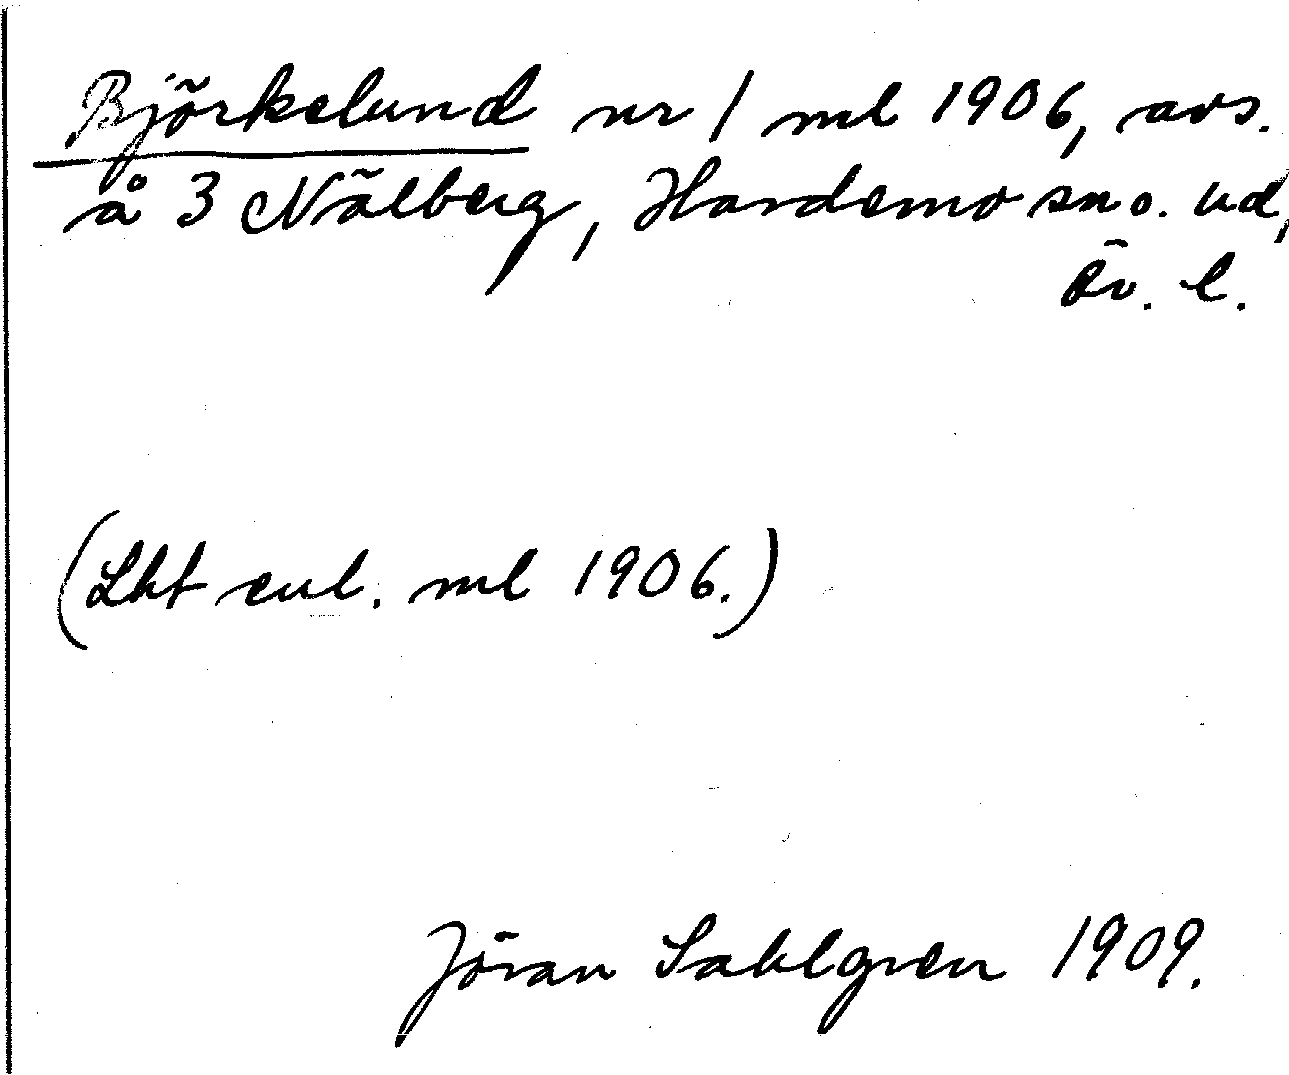 Björkelund nr 1 ml 1906, avs.
å 3 Nälberg, Hardemo sn o. hd,
Ör. l.
(Lht enl. ml 1906.)
Jöran Sahlgren 1909.